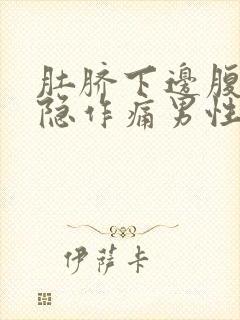 肚脐下邊腹
隐作痛男性
伊萨卡